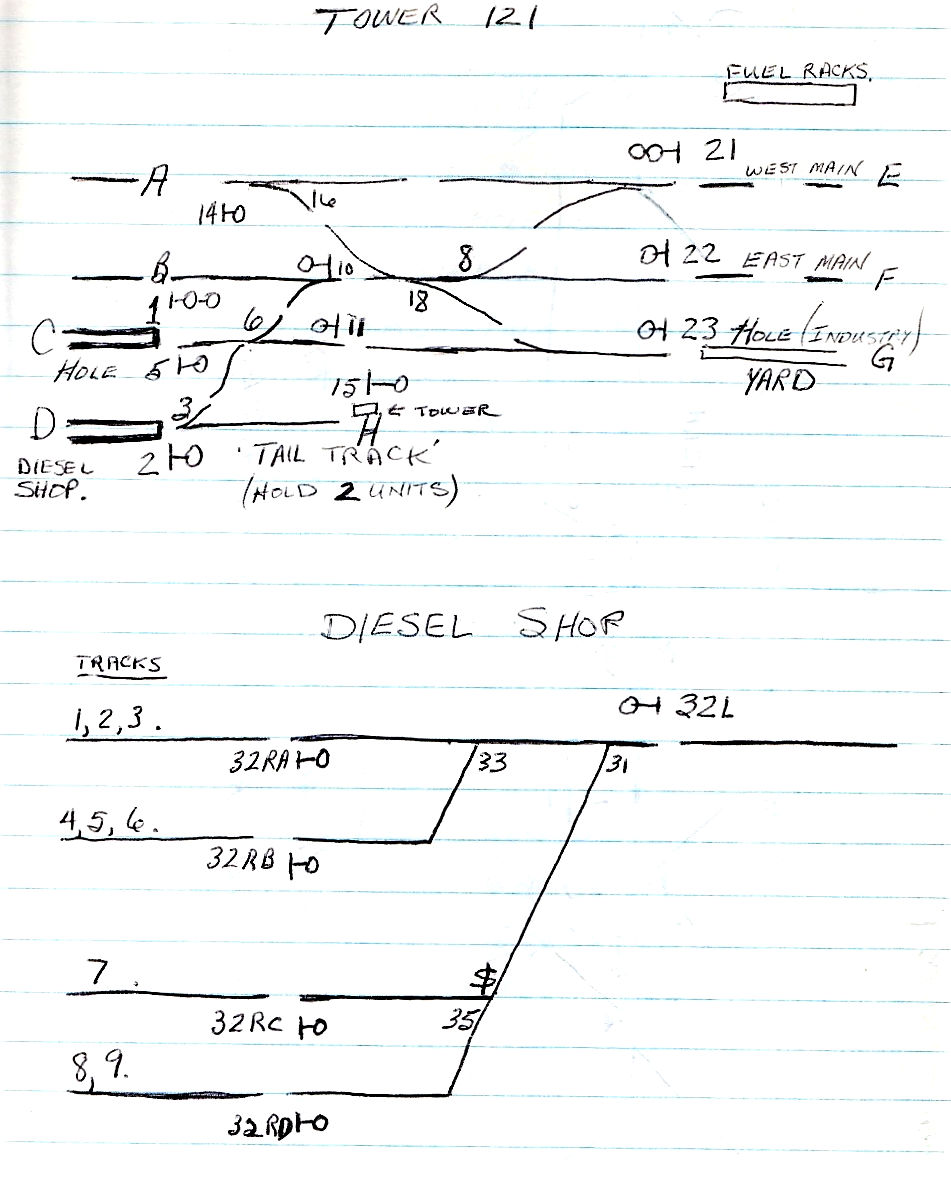 TOWER 121
FUEL RACKS.
A
21
WEST MAIN E
16
14
B
10
8
22 EAST MAIN F
1
18
C
6
11
23 HOLE (INDUSTRY)
G
HOLE 5
YARD
15
D
3
← TOWER
H
DIESEL
SHOP.
2
'TAIL TRACK'
(HOLD 2 UNITS)
DIESEL SHOP
TRACKS
1, 2, 3.
32L
32RA
33
31
4, 5, 6.
32RB
7.
$
32RC
35
8, 9.
32RD